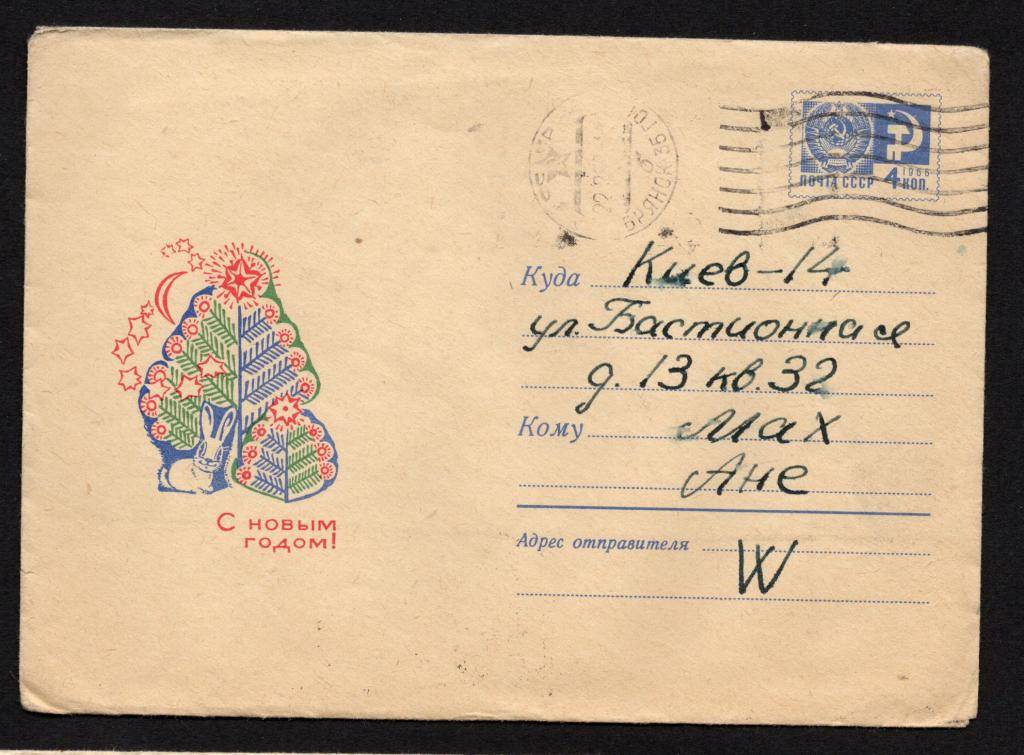 СССР
БРЯНСК 35 ГОР
б
ПОЧТА СССР 4 КОП.
1966
Куда Киев-14
ул. Бастионная
д. 13 кв. 32
Кому Мах
Ане
С НОВЫМ
ГОДОМ!
Адрес отправителя
W